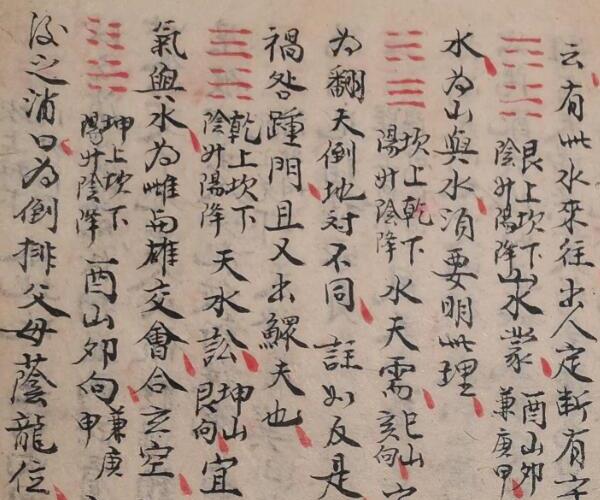 云有此水來往出人定斷有
艮上坎下陰升陽降山水蒙酉山卯兼庚甲
水為山與水須要明此理
坎上乾下陽升陰降水天需巳山亥向
為翻天倒地對不同註如反是
禍咎踵門且又出鰥夫也
乾上坎下陰升陽降天水訟坤山艮向宜
氣與水為雌雄交會合玄空
坤上坎下陽升陰降酉山卯向兼庚甲
之消口為倒排父母蔭龍位